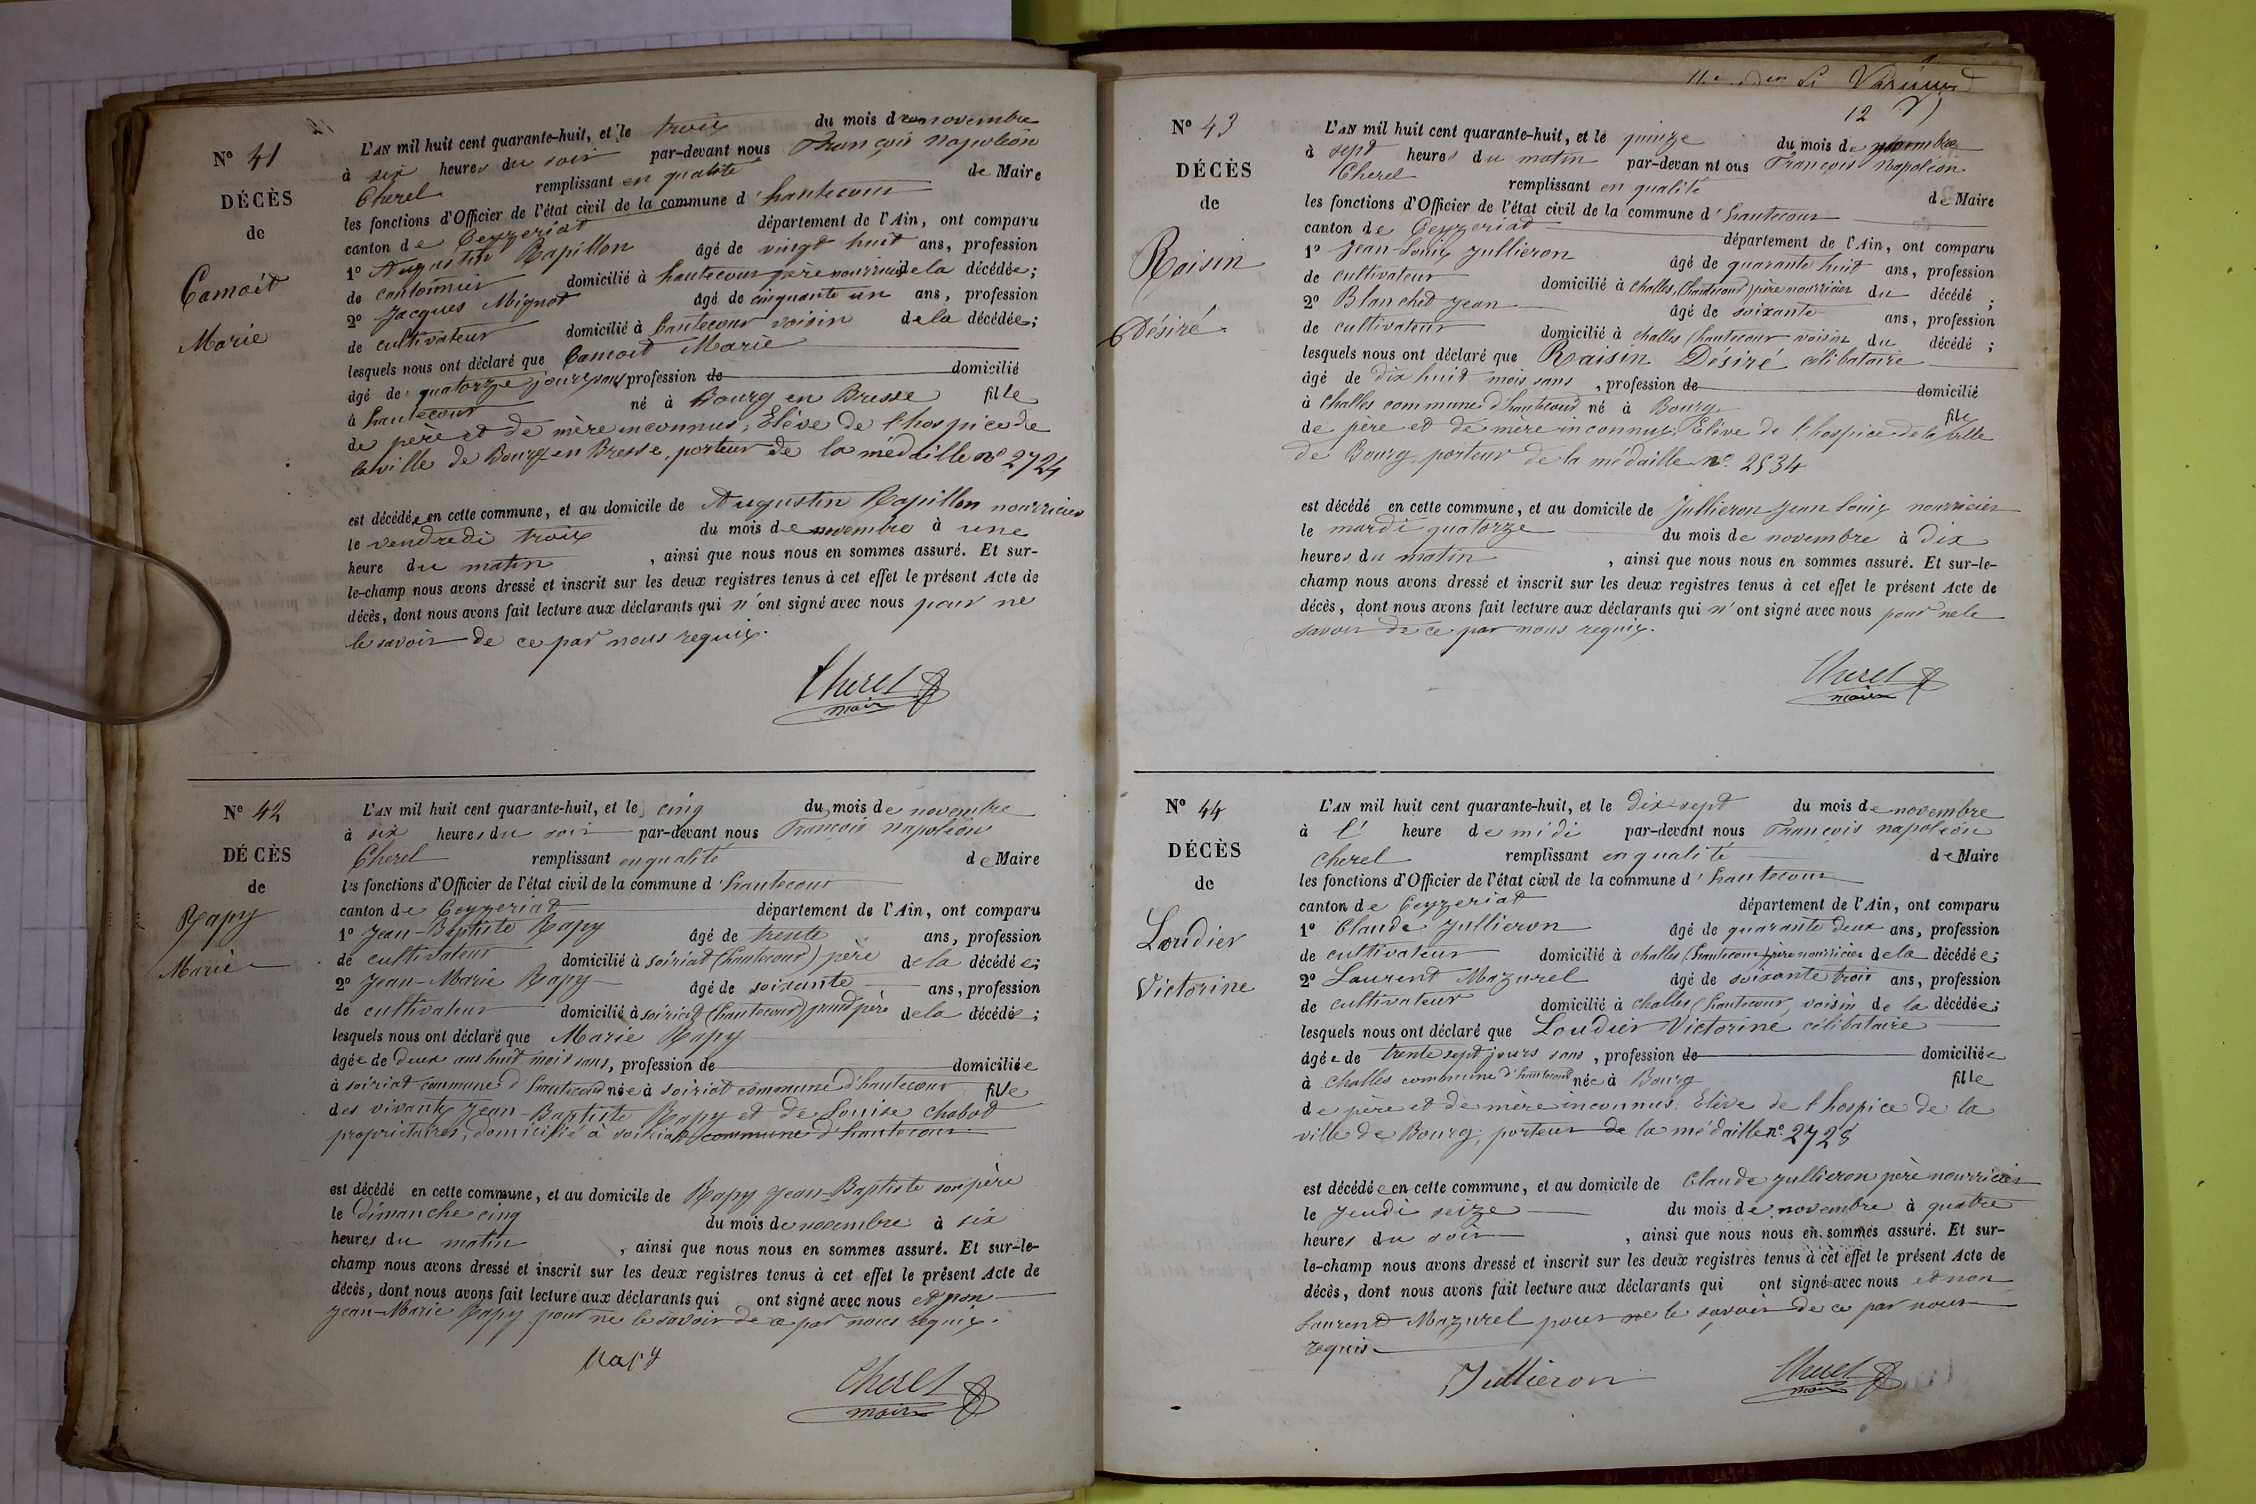 N° 41
DÉCÈS
de
Camoit
Marie
L'AN mil huit cent quarante-huit, et le trois du mois de novembre
à six heures du soir par-devant nous François Napoléon
Cherel remplissant en qualité de Maire
les fonctions d'Officier de l'état civil de la commune d'hautecour
canton de Ceyzeriat département de l'Ain, ont comparu
1° Augustin Rapillon âgé de vingt huit ans, profession
de cantonnier domicilié à hautecour père nourricier de la décédée;
2° Jacques Mignot âgé de cinquante un ans, profession
de cultivateur domicilié à hautecour voisin de la décédée;
lesquels nous ont déclaré que Camoit Marie
âgé de quatorze jours sans profession de domicilié
à hautecour né à Bourg en Bresse fille
de père et de mère inconnus, Elève de l'hospice de
la ville de Bourg en Bresse, porteur de la médaille n° 2724
est décédée en cette commune, et au domicile de Augustin Rapillon nourricier
le vendredi trois du mois de novembre à une
heure du matin, ainsi que nous nous en sommes assuré. Et sur-
le-champ nous avons dressé et inscrit sur les deux registres tenus à cet effet le présent Acte de
décès, dont nous avons fait lecture aux déclarants qui n'ont signé avec nous pour ne
le savoir de ce par nous requis.
Cherel
maire
N° 42
DÉCÈS
de
Rapy
Marie
L'AN mil huit cent quarante-huit, et le cinq du mois de novembre
à six heures du soir par-devant nous François napoléon
Cherel remplissant en qualité de Maire
les fonctions d'Officier de l'état civil de la commune d'hautecour
canton de Ceyzeriat département de l'Ain, ont comparu
1° Jean-Baptiste Rapy âgé de trente ans, profession
de cultivateur domicilié à soiriat (hautecour) père de la décédée;
2° Jean-Marie Rapy âgé de soixante ans, profession
de cultivateur domicilié à soiriat (hautecour) grand père de la décédée;
lesquels nous ont déclaré que Marie Rapy
âgée de deux ans huit mois sans, profession de domiciliée
à soiriat commune d'hautecour née à soiriat commune d'hautecour fille
des vivants Jean-Baptiste Rapy et de Louise Chabot
propriétaires, domicilié à soiriat commune d'hautecour
est décédé en cette commune, et au domicile de Rapy Jean-Baptiste son père
le dimanche cinq du mois de novembre à six
heures du matin, ainsi que nous nous en sommes assuré. Et sur-le-
champ nous avons dressé et inscrit sur les deux registres tenus à cet effet le présent Acte de
décès, dont nous avons fait lecture aux déclarants qui ont signé avec nous et non
Jean-Marie Rapy pour ne le savoir de ce par nous requis.
Rapy
Cherel
maire
12
N° 43
DÉCÈS
de
Raisin
Désiré
L'AN mil huit cent quarante-huit, et le quinze du mois de novembre
à sept heures du matin par-devan nt ous François Napoléon
Cherel remplissant en qualité de Maire
les fonctions d'Officier de l'état civil de la commune d'hautecour
canton de Ceyzeriat département de l'Ain, ont comparu
1° Jean-Louis Jullieron âgé de quarante huit ans, profession
de cultivateur domicilié à challes, (hautecour) père nourricier du décédé;
2° Blanchet Jean âgé de soixante ans, profession
de cultivateur domicilié à challes (hautecour voisin du décédé;
lesquels nous ont déclaré que Raisin Désiré célibataire
âgé de dix huit mois sans, profession de domicilié
à Challes commune d'hautecour né à Bourg fils
de père et de mère inconnus; Elève de l'hospice de la ville
de Bourg, porteur de la médaille n° 2534
est décédé en cette commune, et au domicile de Jullieron Jean Louis nourricier
le mardi quatorze du mois de novembre à dix
heures du matin, ainsi que nous nous en sommes assuré. Et sur-le-
champ nous avons dressé et inscrit sur les deux registres tenus à cet effet le présent Acte de
décès, dont nous avons fait lecture aux déclarants qui n'ont signé avec nous pour ne le
savoir de ce par nous requis.
Cherel
maire
N° 44
DÉCÈS
de
Loudier
Victorine
L'AN mil huit cent quarante-huit, et le dix-sept du mois de novembre
à l' heure de midi par-devant nous François napoléon
Cherel remplissant en qualité de Maire
les fonctions d'Officier de l'état civil de la commune d'hautecour
canton de Ceyzeriat département de l'Ain, ont comparu
1° Claude Jullieron âgé de quarante deux ans, profession
de cultivateur domicilié à challes (hautecour) père nourricier de la décédée;
2° Laurent Mazurel âgé de soixante trois ans, profession
de cultivateur domicilié à challes (hautecour, voisin de la décédée;
lesquels nous ont déclaré que Loudier Victorine célibataire
âgée de trente sept jours sans, profession de domiciliée
à Challes commune d'hautecour née à Bourg fille
de père et de mère inconnus. Elève de l'hospice de la
ville de Bourg, porteur de la médaille n° 2728
est décédée en cette commune, et au domicile de Claude Jullieron père nourricier
le Jeudi seize du mois de novembre à quatre
heures du soir, ainsi que nous nous en sommes assuré. Et sur-
le-champ nous avons dressé et inscrit sur les deux registres tenus à cet effet le présent Acte de
décès, dont nous avons fait lecture aux déclarants qui ont signé avec nous et non
Laurent Mazurel pour ne le savoir de ce par nous
requis
Jullieron
Cherel
maire